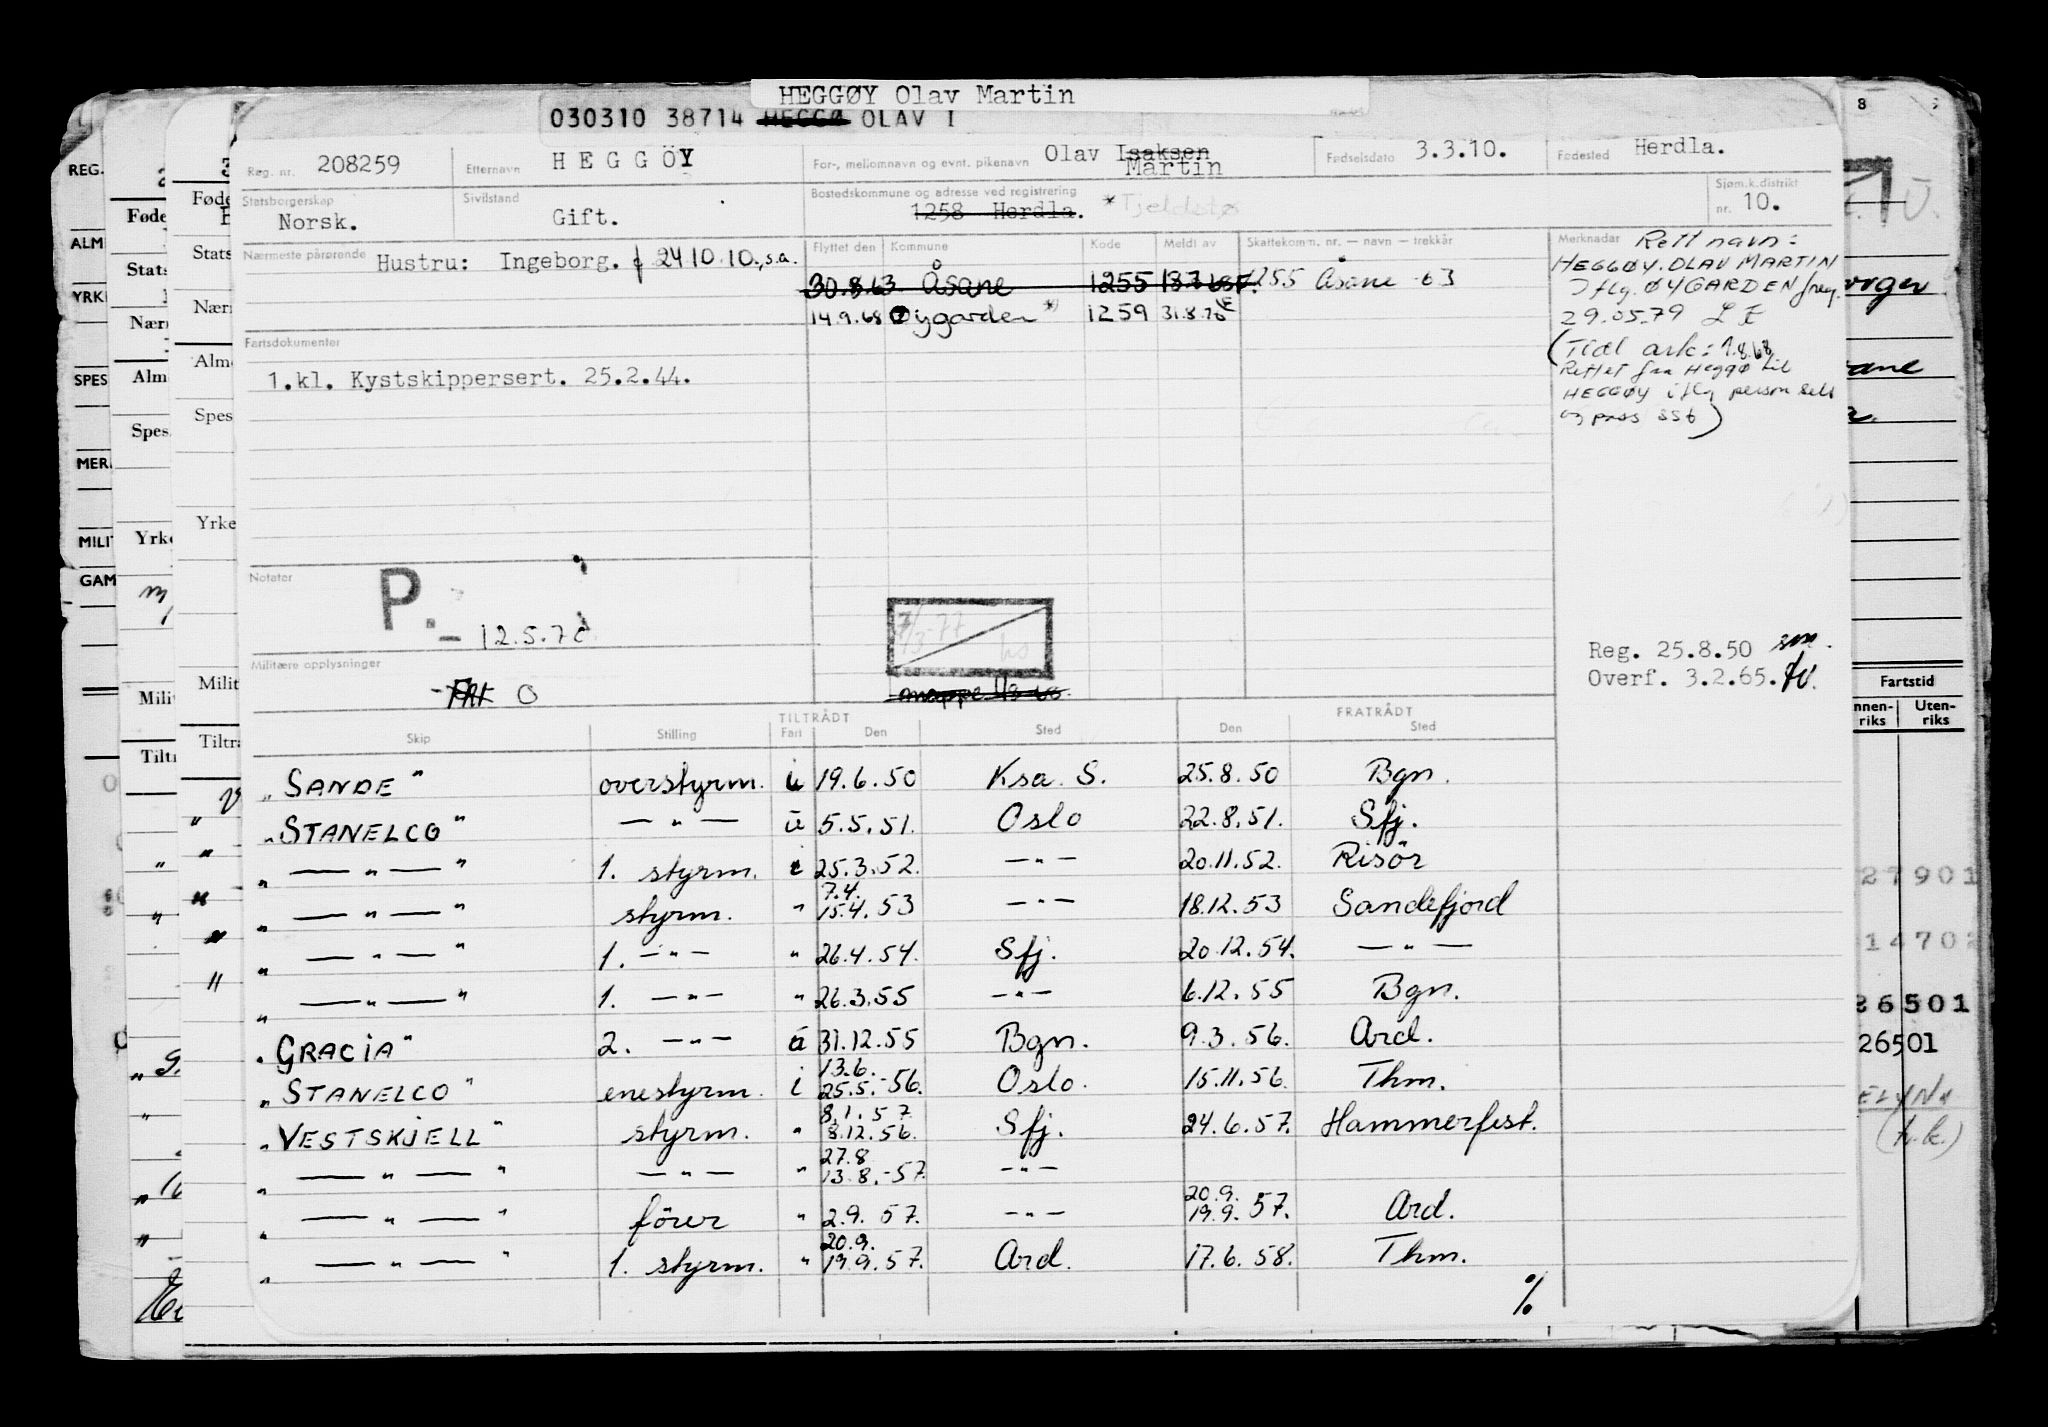 HEGGØY Olav Martin
030310 38714 HEGGØ OLAV I
Reg. nr. 208259 Etternavn HEGGÖY For-, mellomnavn og evnt. pikenavn Olav Isaksen Martin Fødselsdato 3.3.10. Fødested Herdla.
Statsborgerskap Norsk. Sivilstand Gift. Bostedskommune og adresse ved registrering 1258 Herdla. *Tjeldstø Sjøm.k.distrikt nr. 10.
Nærmeste pårørende Hustru: Ingeborg. f 24 10.10., s.a.
Flyttet den Kommune Kode Meldt av Skattekomm. nr. — navn — trekkår
30.8.63 Åsane 1255 1255 Åsane 63
14.9.68 Øygarden *) 1259 31.8.70
Merknader Rett navn:
HEGGØY. OLAV MARTIN
Iflg. ØYGARDEN f/reg.
29.05.79
(Tidl ark: 1.8.68
Rettet fra Heggø til
HEGGØY iflg person selv
og pass SSB)
Fartsdokumenter
1.kl. Kystskippersert. 25.2.44.
Notater
P.
12.5.70
7/3-77
Militære opplysninger
O
Reg. 25.8.50 sm.
Overf. 3.2.65.
TILTRÅDT FRATRÅDT
Skip Stilling Fart Den Sted Den Sted
"SANDE" overstyrm. u 19.6.50 Ksa. S. 25.8.50 Bgn.
"STANELCO" — " — u 5.5.51. Oslo 22.8.51. Sfj.
" — " — " 1. styrm. i 25.3.52. — " — 20.11.52. Risör
" — " — " styrm. " 7.4. 15.4.53 — " — 18.12.53 Sandefjord
" — " — " 1. — " — " 26.4.54. Sfj. 20.12.54. — " —
" — " — " 1. — " — " 26.3.55 — " — 6.12.55 Bgn.
"GRACIA" 2. — " — u 31.12.55 Bgn. 9.3.56. Ard.
"STANELCO" enestyrm. i 13.6. 25.5.-56. Oslo. 15.11.56. Thm.
"VESTSKJELL" styrm. " 8.1.57 8.12.56. Sfj. 24.6.57. Hammerfest.
" — " — " — " — " 27.8 13.8.-57. — " —
" — " — " förer " 2.9.57. — " — 20.9. 19.9.57. Ard.
" — " — " 1. styrm. " 20.9. 19.9.57. Ard. 17.6.58. Thm.
%
REG.
ALM
YRK
SPES
MER
MILI
GAM
Føde
Stats
Nær
Alm
Spes.
Yrke
Mili
Tilt
Føde
Stats
Nær
Alm
Spes
Yrke
Milit
Tiltr
8
Fartstid
nnen-riks Uten-riks
27901
14702
26501
26501
(t.k.)